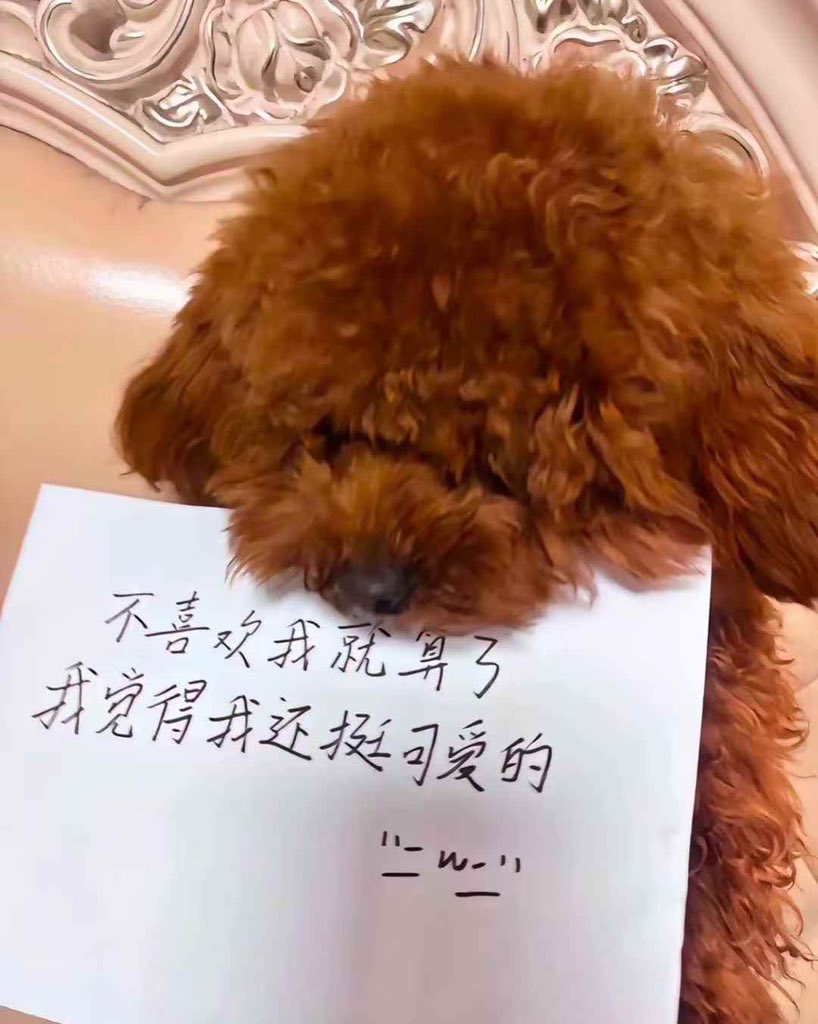 不喜欢我就算了
我觉得我还挺可爱的
"= w = "